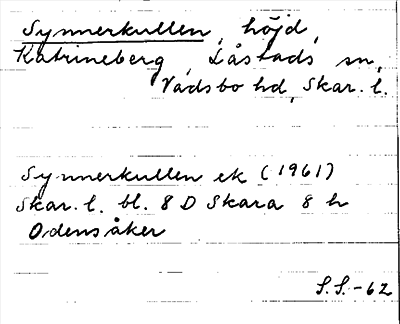 Synnerkullen, höjd,
Katrineberg, Låstads sn,
Vadsbo hd, Skar. l.
Synnerkullen ek (1961)
Skar. l. bl. 8 D Skara 8 h
Odensåker
S.S.-62